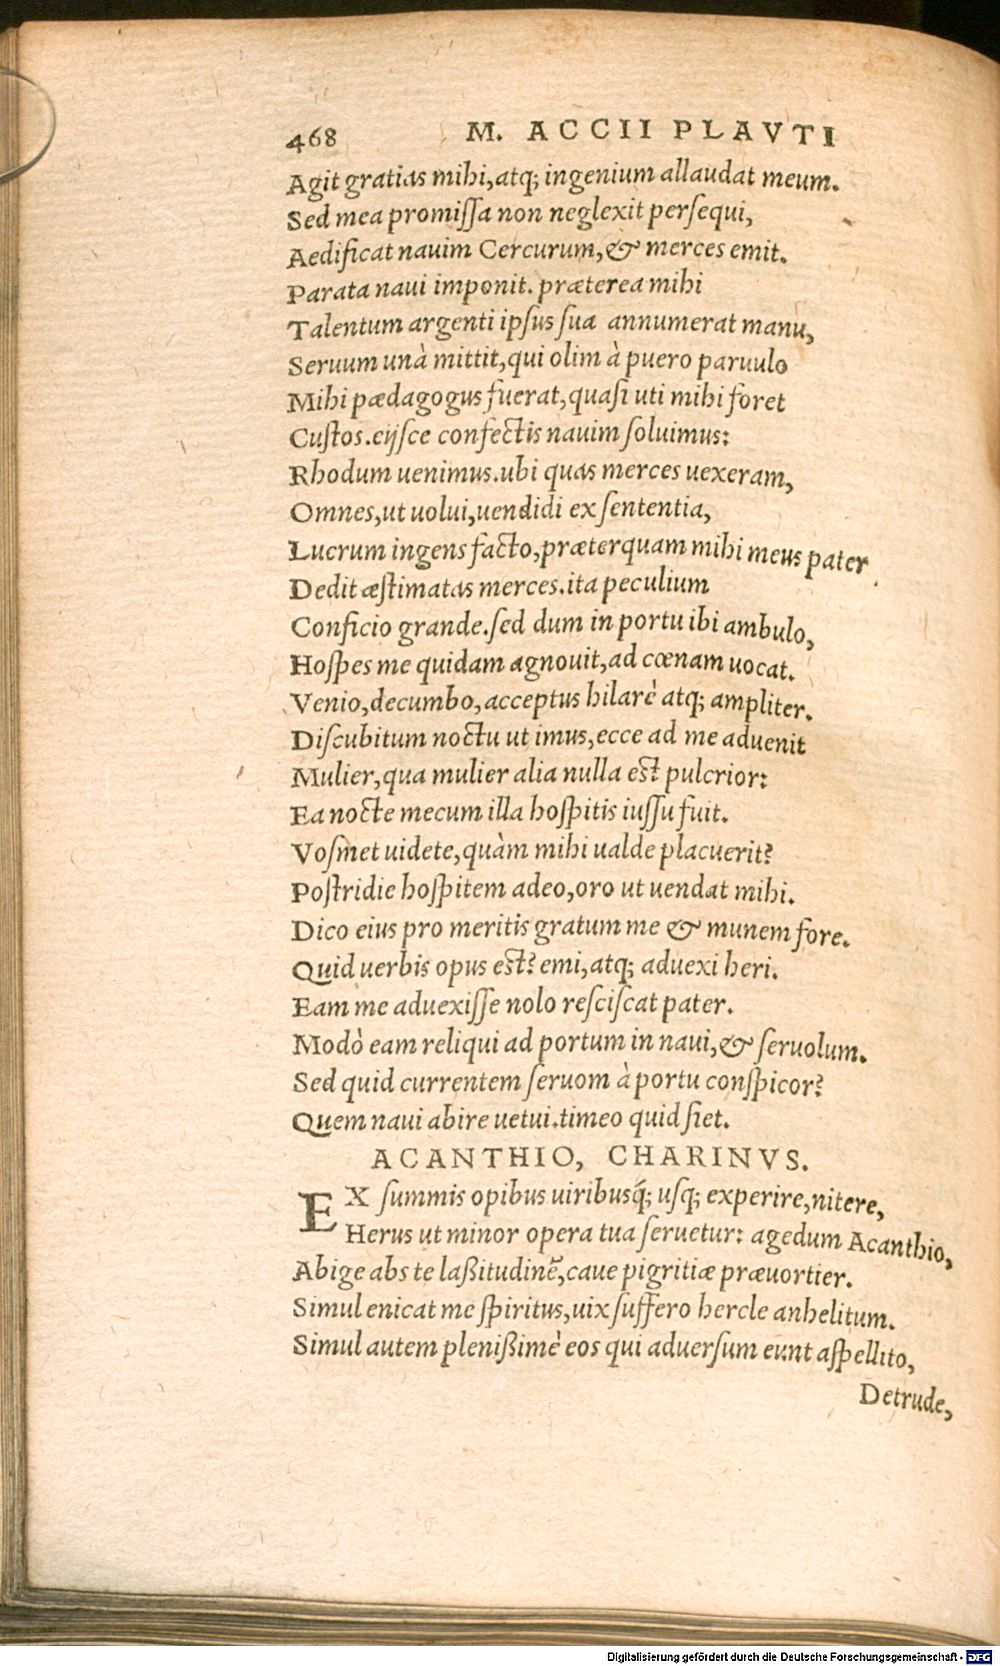 468 M. ACCII PLAVTI
Agit gratias mihi, atq; ingenium allaudat meum.
Sed mea promiſſa non neglexit perſequi,
Aedificat nauim Cercurum, & merces emit.
Parata naui imponit. præterea mihi
Talentum argenti ipſus ſua annumerat manu,
Seruum unà mittit, qui olim à puero paruulo
Mihi pædagogus fuerat, quaſi uti mihi foret
Cuſtos. eijſce confectis nauim ſoluimus:
Rhodum uenimus. ubi quas merces uexeram,
Omnes, ut uolui, uendidi ex ſententia,
Lucrum ingens facto, præterquam mihi meus pater
Dedit æſtimatas merces. ita peculium
Conficio grande. ſed dum in portu ibi ambulo,
Hoſpes me quidam agnouit, ad cœnam uocat.
Venio, decumbo, acceptus hilarè atq; ampliter.
Diſcubitum noctu ut imus, ecce ad me aduenit
Mulier, qua mulier alia nulla eſt pulcrior:
Ea nocte mecum illa hoſpitis iuſſu fuit.
Voſmet uidete, quàm mihi ualde placuerit?
Poſtridie hoſpitem adeo, oro ut uendat mihi.
Dico eius pro meritis gratum me & munem fore.
Quid uerbis opus eſt? emi, atq; aduexi heri.
Eam me aduexiſſe nolo reſciſcat pater.
Modò eam reliqui ad portum in naui, & ſeruolum.
Sed quid currentem ſeruom à portu conſpicor?
Quem naui abire uetui. timeo quid ſiet.
ACANTHIO, CHARINVS.
EX ſummis opibus uiribusq́; uſq; experire, nitere,
Herus ut minor opera tua ſeruetur: agedum Acanthio,
Abige abs te laßitudinẽ, caue pigritiæ præuortier.
Simul enicat me ſpiritus, uix ſuffero hercle anhelitum.
Simul autem pleniſsimè eos qui aduerſum eunt aſpellito,
Detrude,
Digitalisierung gefördert durch die Deutsche Forschungsgemeinschaft - DFG